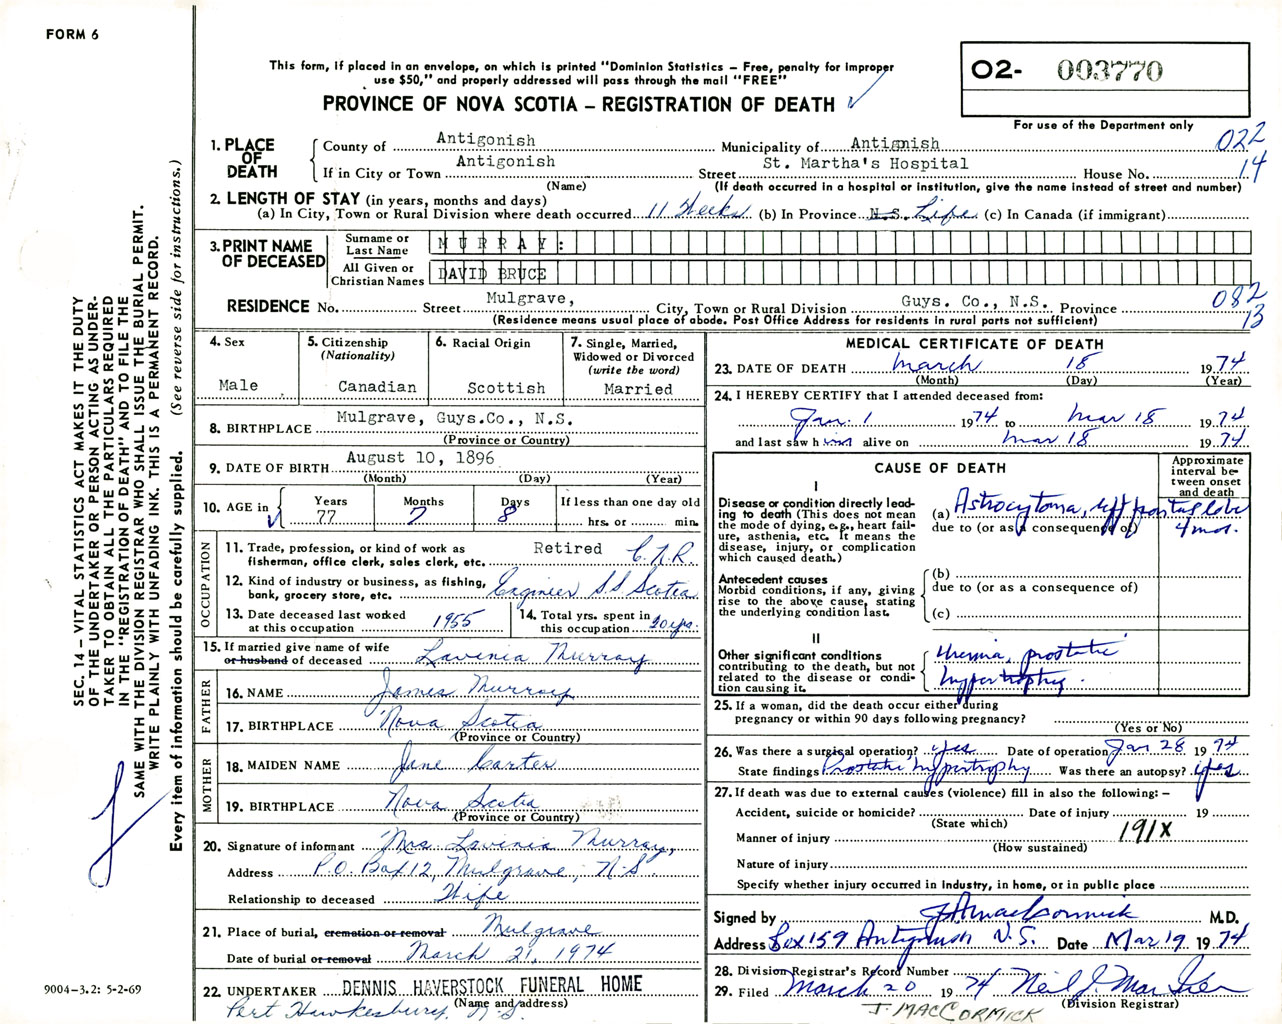 FORM 6
This form, if placed in an envelope, on which is printed "Dominion Statistics – Free, penalty for improper
use $50," and properly addressed will pass through the mail "FREE"
PROVINCE OF NOVA SCOTIA – REGISTRATION OF DEATH
O2- 003770
For use of the Department only
022
14
1. PLACE OF DEATH
County of Antigonish Municipality of Antignish
If in City or Town Antigonish Street St. Martha's Hospital House No.
(Name) (If death occurred in a hospital or institution, give the name instead of street and number)
2. LENGTH OF STAY (in years, months and days)
(a) In City, Town or Rural Division where death occurred 11 Weeks (b) In Province N.S. Life (c) In Canada (if immigrant)
3. PRINT NAME OF DECEASED
Surname or Last Name MURRAY:
All Given or Christian Names DAVID BRUCE
RESIDENCE No. Street Mulgrave, City, Town or Rural Division Guys. Co., N.S. Province
(Residence means usual place of abode. Post Office Address for residents in rural parts not sufficient)
082
13
4. Sex
Male
5. Citizenship
(Nationality)
Canadian
6. Racial Origin
Scottish
7. Single, Married,
Widowed or Divorced
(write the word)
Married
8. BIRTHPLACE Mulgrave, Guys.Co., N.S.
(Province or Country)
9. DATE OF BIRTH August 10, 1896
(Month) (Day) (Year)
10. AGE in
Years Months Days If less than one day old
77 7 8 hrs. or min.
OCCUPATION
11. Trade, profession, or kind of work as Retired C.N.R.
fisherman, office clerk, sales clerk, etc.
12. Kind of industry or business, as fishing, Enginier S.S Scotia
bank, grocery store, etc.
13. Date deceased last worked
at this occupation 1955
14. Total yrs. spent in
this occupation 20 yrs.
15. If married give name of wife
or husband of deceased Lavinia Murray
FATHER
16. NAME James Murray
17. BIRTHPLACE Nova Scotia
(Province or Country)
MOTHER
18. MAIDEN NAME Jane Carter
19. BIRTHPLACE Nova Scotia
(Province or Country)
20. Signature of informant Mrs Lavinia Murray,
Address P.O. Box 12, Mulgrave, N.S.
Relationship to deceased Wife
21. Place of burial, cremation or removal Mulgrave
Date of burial or removal March 21, 1974
22. UNDERTAKER DENNIS HAVERSTOCK FUNERAL HOME
(Name and address)
Port Hawkesbury, N.S.
MEDICAL CERTIFICATE OF DEATH
23. DATE OF DEATH March 18 1974
(Month) (Day) (Year)
24. I HEREBY CERTIFY that I attended deceased from:
Jan. 1 1974 to Mar 18 1974
and last saw him alive on Mar 18 1974
CAUSE OF DEATH
Approximate
interval be-
tween onset
and death
I
Disease or condition directly lead-
ing to death (This does not mean
the mode of dying, e.g., heart fail-
ure, asthenia, etc. It means the
disease, injury, or complication
which caused death.)
(a) Astrocytoma, left frontal lobe
due to (or as a consequence of) 4 mos.
Antecedent causes
Morbid conditions, if any, giving
rise to the above cause, stating
the underlying condition last.
(b)
due to (or as a consequence of)
(c)
II
Other significant conditions
contributing to the death, but not
related to the disease or condi-
tion causing it.
Uremia, prostatic
hypertrophy.
25. If a woman, did the death occur either during
pregnancy or within 90 days following pregnancy?
(Yes or No)
26. Was there a surgical operation? yes Date of operation Jan 28 1974
State findings Prostatic hypertrophy Was there an autopsy? yes
27. If death was due to external causes (violence) fill in also the following: –
Accident, suicide or homicide? Date of injury 19
(State which)
191X
Manner of injury
(How sustained)
Nature of injury
Specify whether injury occurred in industry, in home, or in public place
Signed by J.A. MacCormick M.D.
Address Box 159 Antigonish N.S. Date Mar 19 1974
28. Division Registrar's Record Number
29. Filed March 20 1974 Neil J.
(Division Registrar)
J. MACCORMICK
SEC. 14 – VITAL STATISTICS ACT MAKES IT THE DUTY
OF THE UNDERTAKER OR PERSON ACTING AS UNDER-
TAKER TO OBTAIN ALL THE PARTICULARS REQUIRED
IN THE "REGISTRATION OF DEATH" AND TO FILE THE
SAME WITH THE DIVISION REGISTRAR WHO SHALL ISSUE THE BURIAL PERMIT.
WRITE PLAINLY WITH UNFADING INK. THIS IS A PERMANENT RECORD.
Every item of information should be carefully supplied. (See reverse side for instructions.)
9004-3.2: 5-2-69